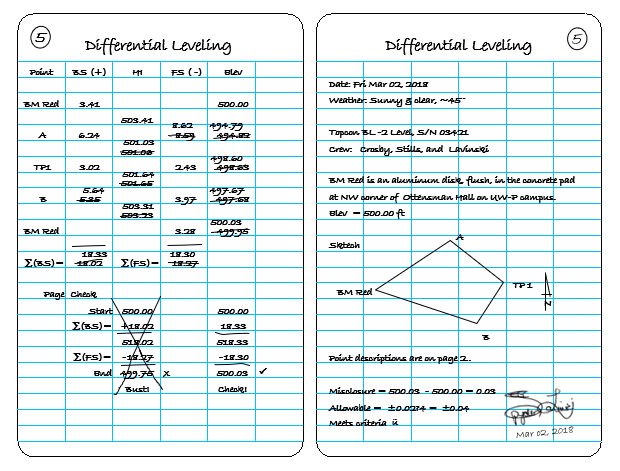 5
Differential Leveling
Point BS (+) HI FS (-) Elev
BM Red 3.41 500.00
503.41
8.62 494.79
A 6.24 8.59 494.82
501.03
501.06
498.60
TP1 3.02 2.43 498.63
501.64
501.65
5.64 497.67
B 5.35 3.97 497.68
503.31
503.23
500.03
BM Red 3.28 499.95
18.33 18.30
Σ(BS)= 18.02 Σ(FS)= 18.27
Page Check
Start 500.00 500.00
Σ(BS)= +18.02 18.33
518.02 518.33
Σ(FS)= -18.27 -18.30
End 499.75 X 500.03 ✓
Bust! Check!
5
Differential Leveling
Date: Fri Mar 02, 2018
Weather: Sunny & clear, ~45°
Topcon BL-2 Level, S/N 03421
Crew: Crosby, Stills, and Lavinski
BM Red is an aluminum disk, flush, in the concrete pad
at NW corner of Ottensman Hall on UW-P campus.
Elev = 500.00 ft
Sktech
A
BM Red
TP1
N
B
Point descriptions are on page 2.
Misclosure = 500.03 - 500.00 = 0.03
Allowable = ±0.0374 = ±0.04
Meets criteria ü
Mar 02, 2018